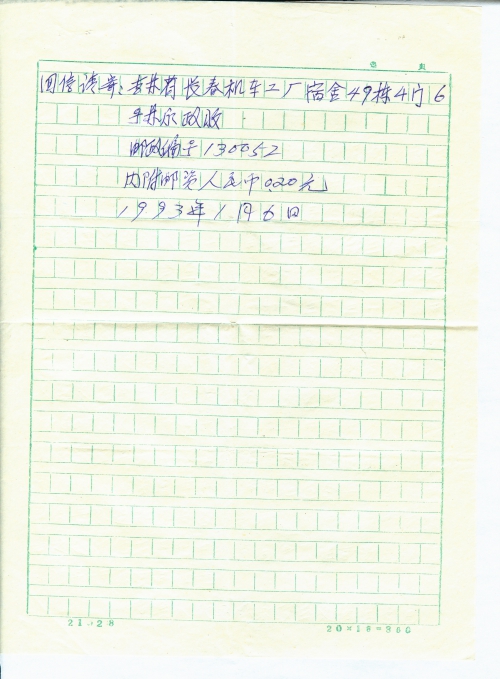 页
回信请寄：吉林省长春机车工厂宿舍49栋4门6
收
邮政编号130052
内附邮资人民币0.20元
1993年1月6日
20×18=360